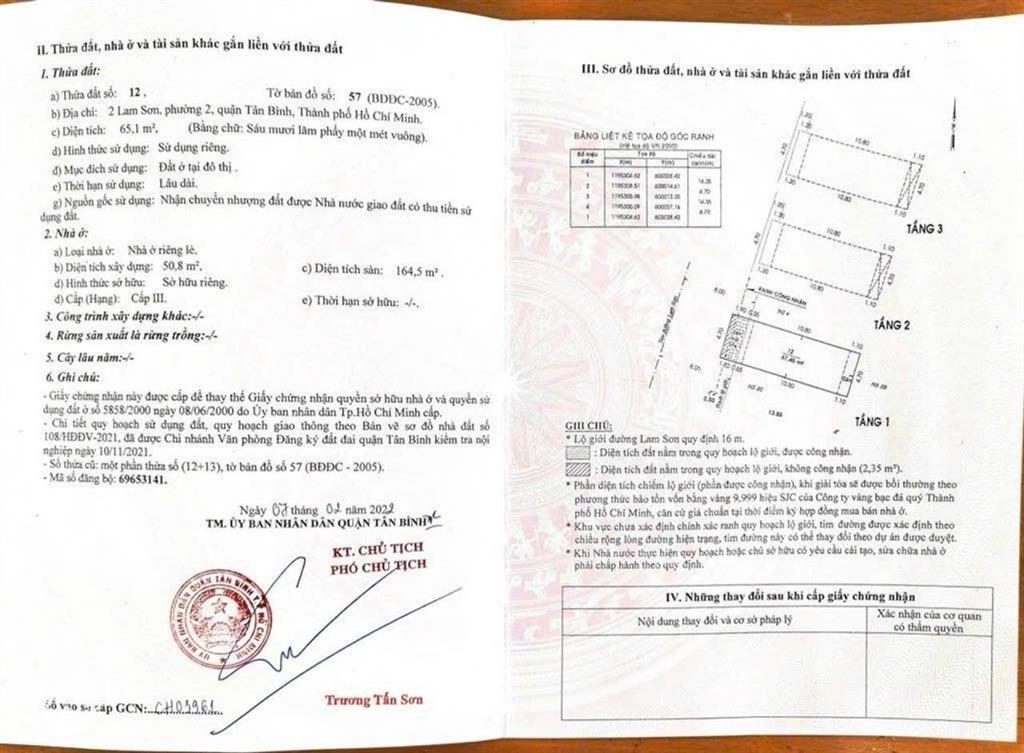 II. Thửa đất, nhà ở và tài sản khác gắn liền với thửa đất
1. Thửa đất:
a) Thửa đất số: 12 , Tờ bản đồ số: 57 (BDĐC-2005).
b) Địa chỉ: 2 Lam Sơn, phường 2, quận Tân Bình, Thành phố Hồ Chí Minh.
c) Diện tích: 65,1 m², (Bằng chữ: Sáu mươi lăm phẩy một mét vuông).
d) Hình thức sử dụng: Sử dụng riêng.
đ) Mục đích sử dụng: Đất ở tại đô thị .
e) Thời hạn sử dụng: Lâu dài.
g) Nguồn gốc sử dụng: Nhận chuyển nhượng đất được Nhà nước giao đất có thu tiền sử
dụng đất.
2. Nhà ở:
a) Loại nhà ở: Nhà ở riêng lẻ.
b) Diện tích xây dựng: 50,8 m². c) Diện tích sàn: 164,5 m² .
d) Hình thức sở hữu: Sở hữu riêng.
đ) Cấp (Hạng): Cấp III. e) Thời hạn sở hữu: -/-.
3. Công trình xây dựng khác:-/-
4. Rừng sản xuất là rừng trồng:-/-
5. Cây lâu năm:-/-
6. Ghi chú:
- Giấy chứng nhận này được cấp để thay thế Giấy chứng nhận quyền sở hữu nhà ở và quyền sử
dụng đất ở số 5858/2000 ngày 08/06/2000 do Ủy ban nhân dân Tp.Hồ Chí Minh cấp.
- Chi tiết quy hoạch sử dụng đất, quy hoạch giao thông theo Bản vẽ sơ đồ nhà đất số
108/HĐĐV-2021, đã được Chi nhánh Văn phòng Đăng ký đất đai quận Tân Bình kiểm tra nội
nghiệp ngày 10/11/2021.
- Số thửa cũ: một phần thửa số (12+13), tờ bản đồ số 57 (BĐĐC - 2005).
- Mã số đăng bộ: 69653141.
Ngày 07 tháng 02 năm 2022
TM. ỦY BAN NHÂN DÂN QUẬN TÂN BÌNH
KT. CHỦ TỊCH
PHÓ CHỦ TỊCH
ỦY BAN NHÂN DÂN QUẬN TÂN BÌNH T.P HỒ CHÍ MINH
Trương Tấn Sơn
Số vào sổ cấp GCN: CH03961
III. Sơ đồ thửa đất, nhà ở và tài sản khác gắn liền với thửa đất
BẢNG LIỆT KÊ TỌA ĐỘ GÓC RANH
(Hệ tọa độ VN 2000)
Số hiệu điểm Tọa độ Chiều dài
X(m) Y(m) cạnh(m)
1 1195304.62
14.35
2 1195308.51 600014.61
4.70
3
14.35
4 1195300.09
4.70
1 1195304.62
1.20
1.30 10.80 1.10
4.70 4.70
1.30 10.80 1.10
TẦNG 3
1.30 10.80 1.10
4.70 4.70
1.30 10.80 1.10
TẦNG 2
RANH CÔNG NHẬN
Tim đường Lam Sơn
8.00
10.80 1.10
4.70 12 4.70
67.45 m²
8.00 10.80 1.10
13.85
TẦNG 1
GHI CHÚ:
* Lộ giới đường Lam Sơn quy định 16 m.
: Diện tích đất nằm trong quy hoạch lộ giới, được công nhận.
: Diện tích đất nằm trong quy hoạch lộ giới, không công nhận (2,35 m²).
* Phần diện tích chiếm lộ giới (phần được công nhận), khi giải tỏa sẽ được bồi thường theo
phương thức bảo tồn vốn bằng vàng 9.999 hiệu SJC của Công ty vàng bạc đá quý Thành
phố Hồ Chí Minh, căn cứ giá chuẩn tại thời điểm ký hợp đồng mua bán nhà ở.
* Khu vực chưa xác định chính xác ranh quy hoạch lộ giới, tim đường được xác định theo
chiều rộng lòng đường hiện trạng, tim đường này có thể thay đổi theo dự án được duyệt.
* Khi Nhà nước thực hiện quy hoạch hoặc chủ sở hữu có yêu cầu cải tạo, sửa chữa nhà ở
phải chấp hành theo quy định.
IV. Những thay đổi sau khi cấp giấy chứng nhận
Nội dung thay đổi và cơ sở pháp lý Xác nhận của cơ quan
có thẩm quyền